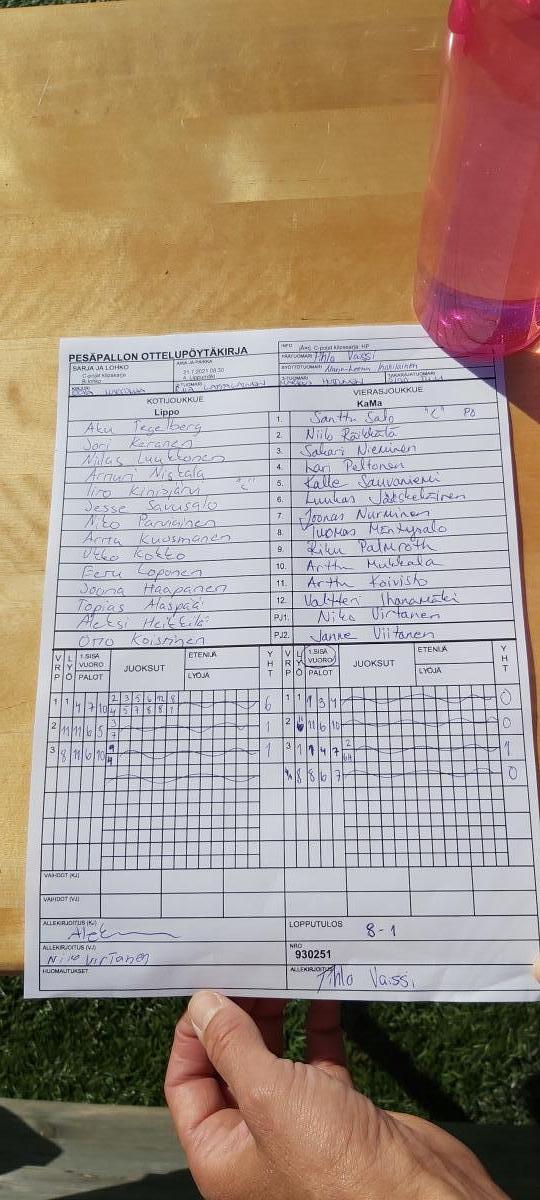 PESÄPALLON OTTELUPÖYTÄKIRJA
SARJA JA LOHKO
C-pojat kilosarja
B.lohko
AIKA JA PAIKKA
21.7.2021 08:30
INFO
C-pojat kilosarja
PÄÄTUOMARI Vaissi
SYÖTTÖTUOMARI
2-TUOMARI
3-TUOMARI
TAKARAJATUOMARI
KOTIJOUKKUE
Lippo
VIERASJOUKKUE
KaMa
Aku Tegelberg 1. Santtu Salo "C" PO
Joni Keränen 2. Niilo Räikkölä
Niilas Luukkonen 3. Sakari Nieminen
Artturi Niskala 4. Kari Peltonen
Iiro Kinisjärvi "C" 5. Kalle Sauvaniemi
Jesse Savusalo 6. Luukas Jääskeläinen
Niko Parviainen 7. Joonas Nurminen
Arttu Kuosmanen 8. Tuomas Mäntysalo
Utko Kokko 9. Riku Palmroth
Eeru Loponen 10. Arttu Mukkala
Joona Haapanen 11. Arttu Koivisto
Topias Alaspää 12. Valtteri Ihanamäki
Aleksi Heikkilä PJ1. Niko Virtanen
Otto Koistinen PJ2. Janne Viitanen
VRP LYÖ 1.SISÄ VUORO PALOT JUOKSUT ETENIJÄ LYÖJÄ YHT
VRP LYÖ 1.SISÄ VUORO PALOT JUOKSUT ETENIJÄ LYÖJÄ YHT
1 1 4 7 10 2 3 5 6 12 8 6 1 1 1 3 4 0
4 5 7 8 8 1
2 11 11 6 5 3 1 2 11 6 10 0
7
3 8 11 6 10 9 1 3 1 1 4 7 2 1
4
8 8 6 7 0
VAIHDOT (KJ)
VAIHDOT (VJ)
ALLEKIRJOITUS (KJ)
LOPPUTULOS 8-1
ALLEKIRJOITUS (VJ)
Niko Virtanen
NRO
930251
HUOMAUTUKSET
ALLEKIRJOITUS
Vaissi